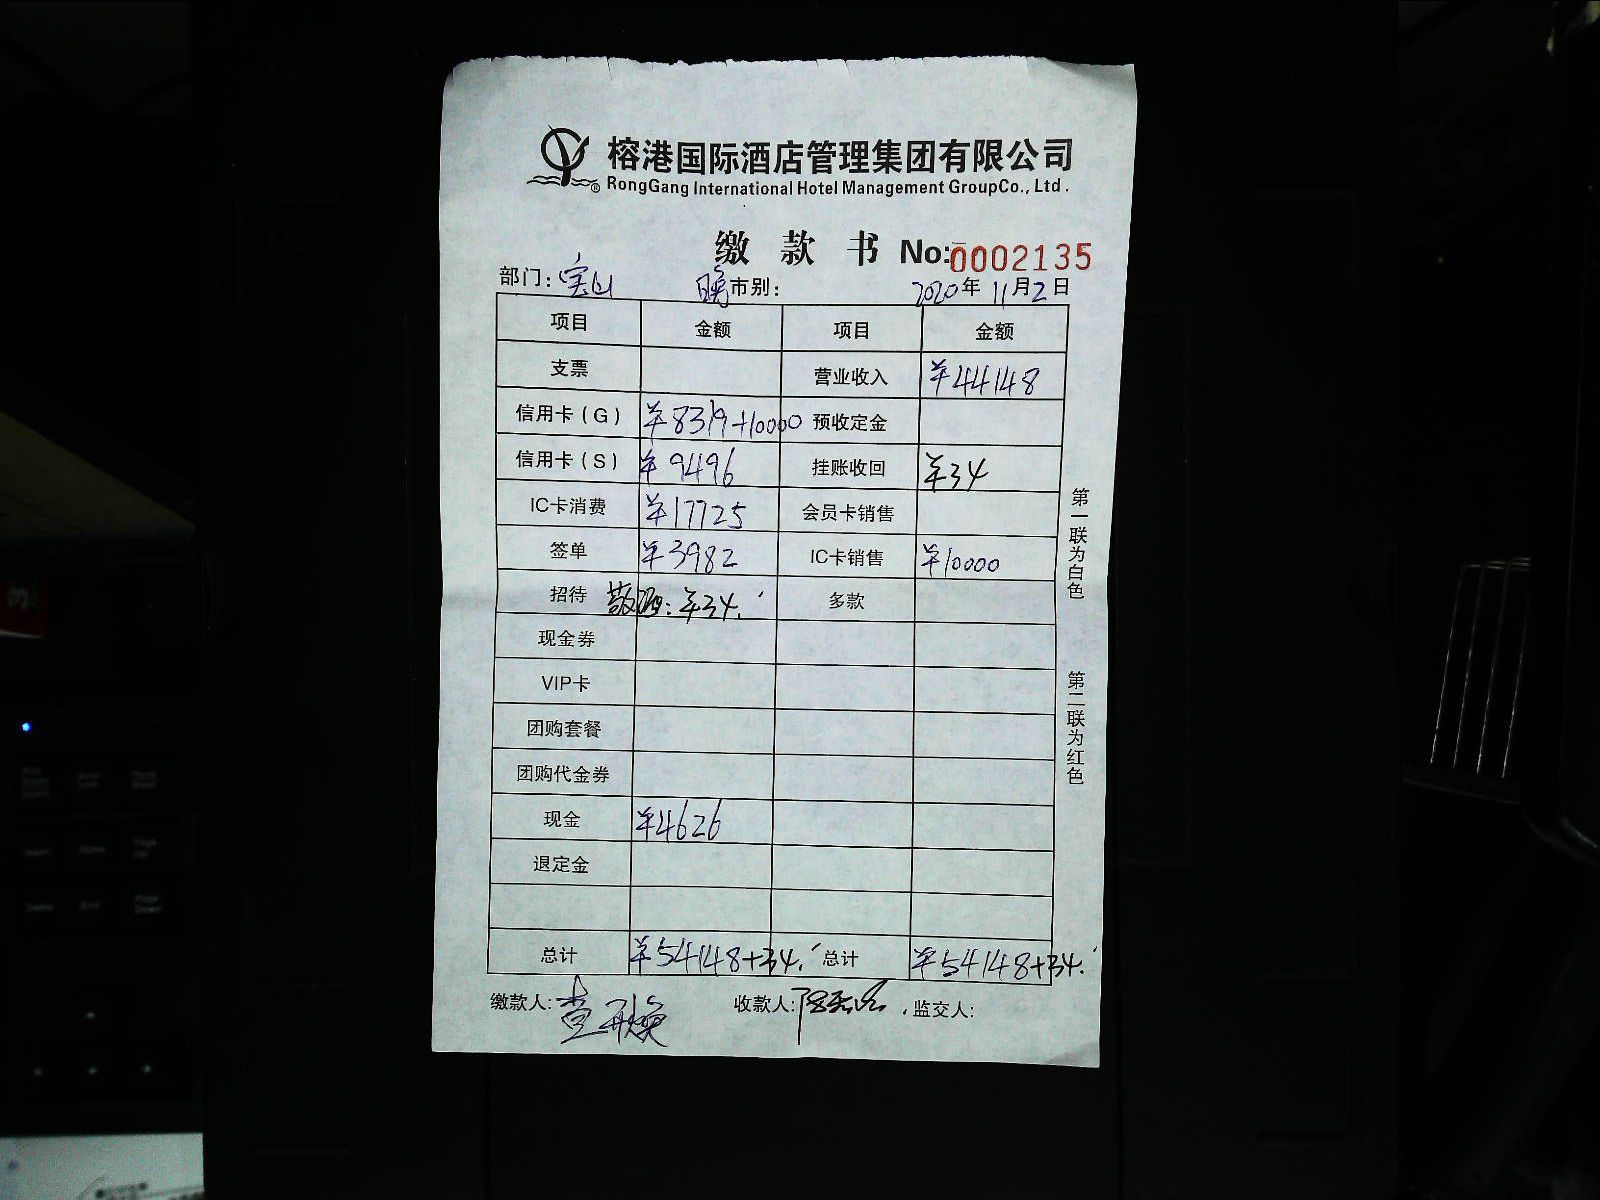 榕港国际酒店管理集团有限公司
RongGang International Hotel Management GroupCo., Ltd.
缴款书 No:0002135
部门: 宝山 晚市别: 2020年11月2日
项目 金额 项目 金额
支票 营业收入 ¥44148
信用卡(G) ¥8319+10000 预收定金
信用卡(S) ¥9496 挂账收回 ¥34
IC卡消费 ¥17725 会员卡销售
签单 ¥3982 IC卡销售 ¥10000
招待 ¥34. 多款
现金券
VIP卡
团购套餐
团购代金券
现金 ¥4626
退定金
总计 ¥54148+34. 总计 ¥54148+34.
缴款人: 收款人: 监交人:
第一联为白色
第二联为红色